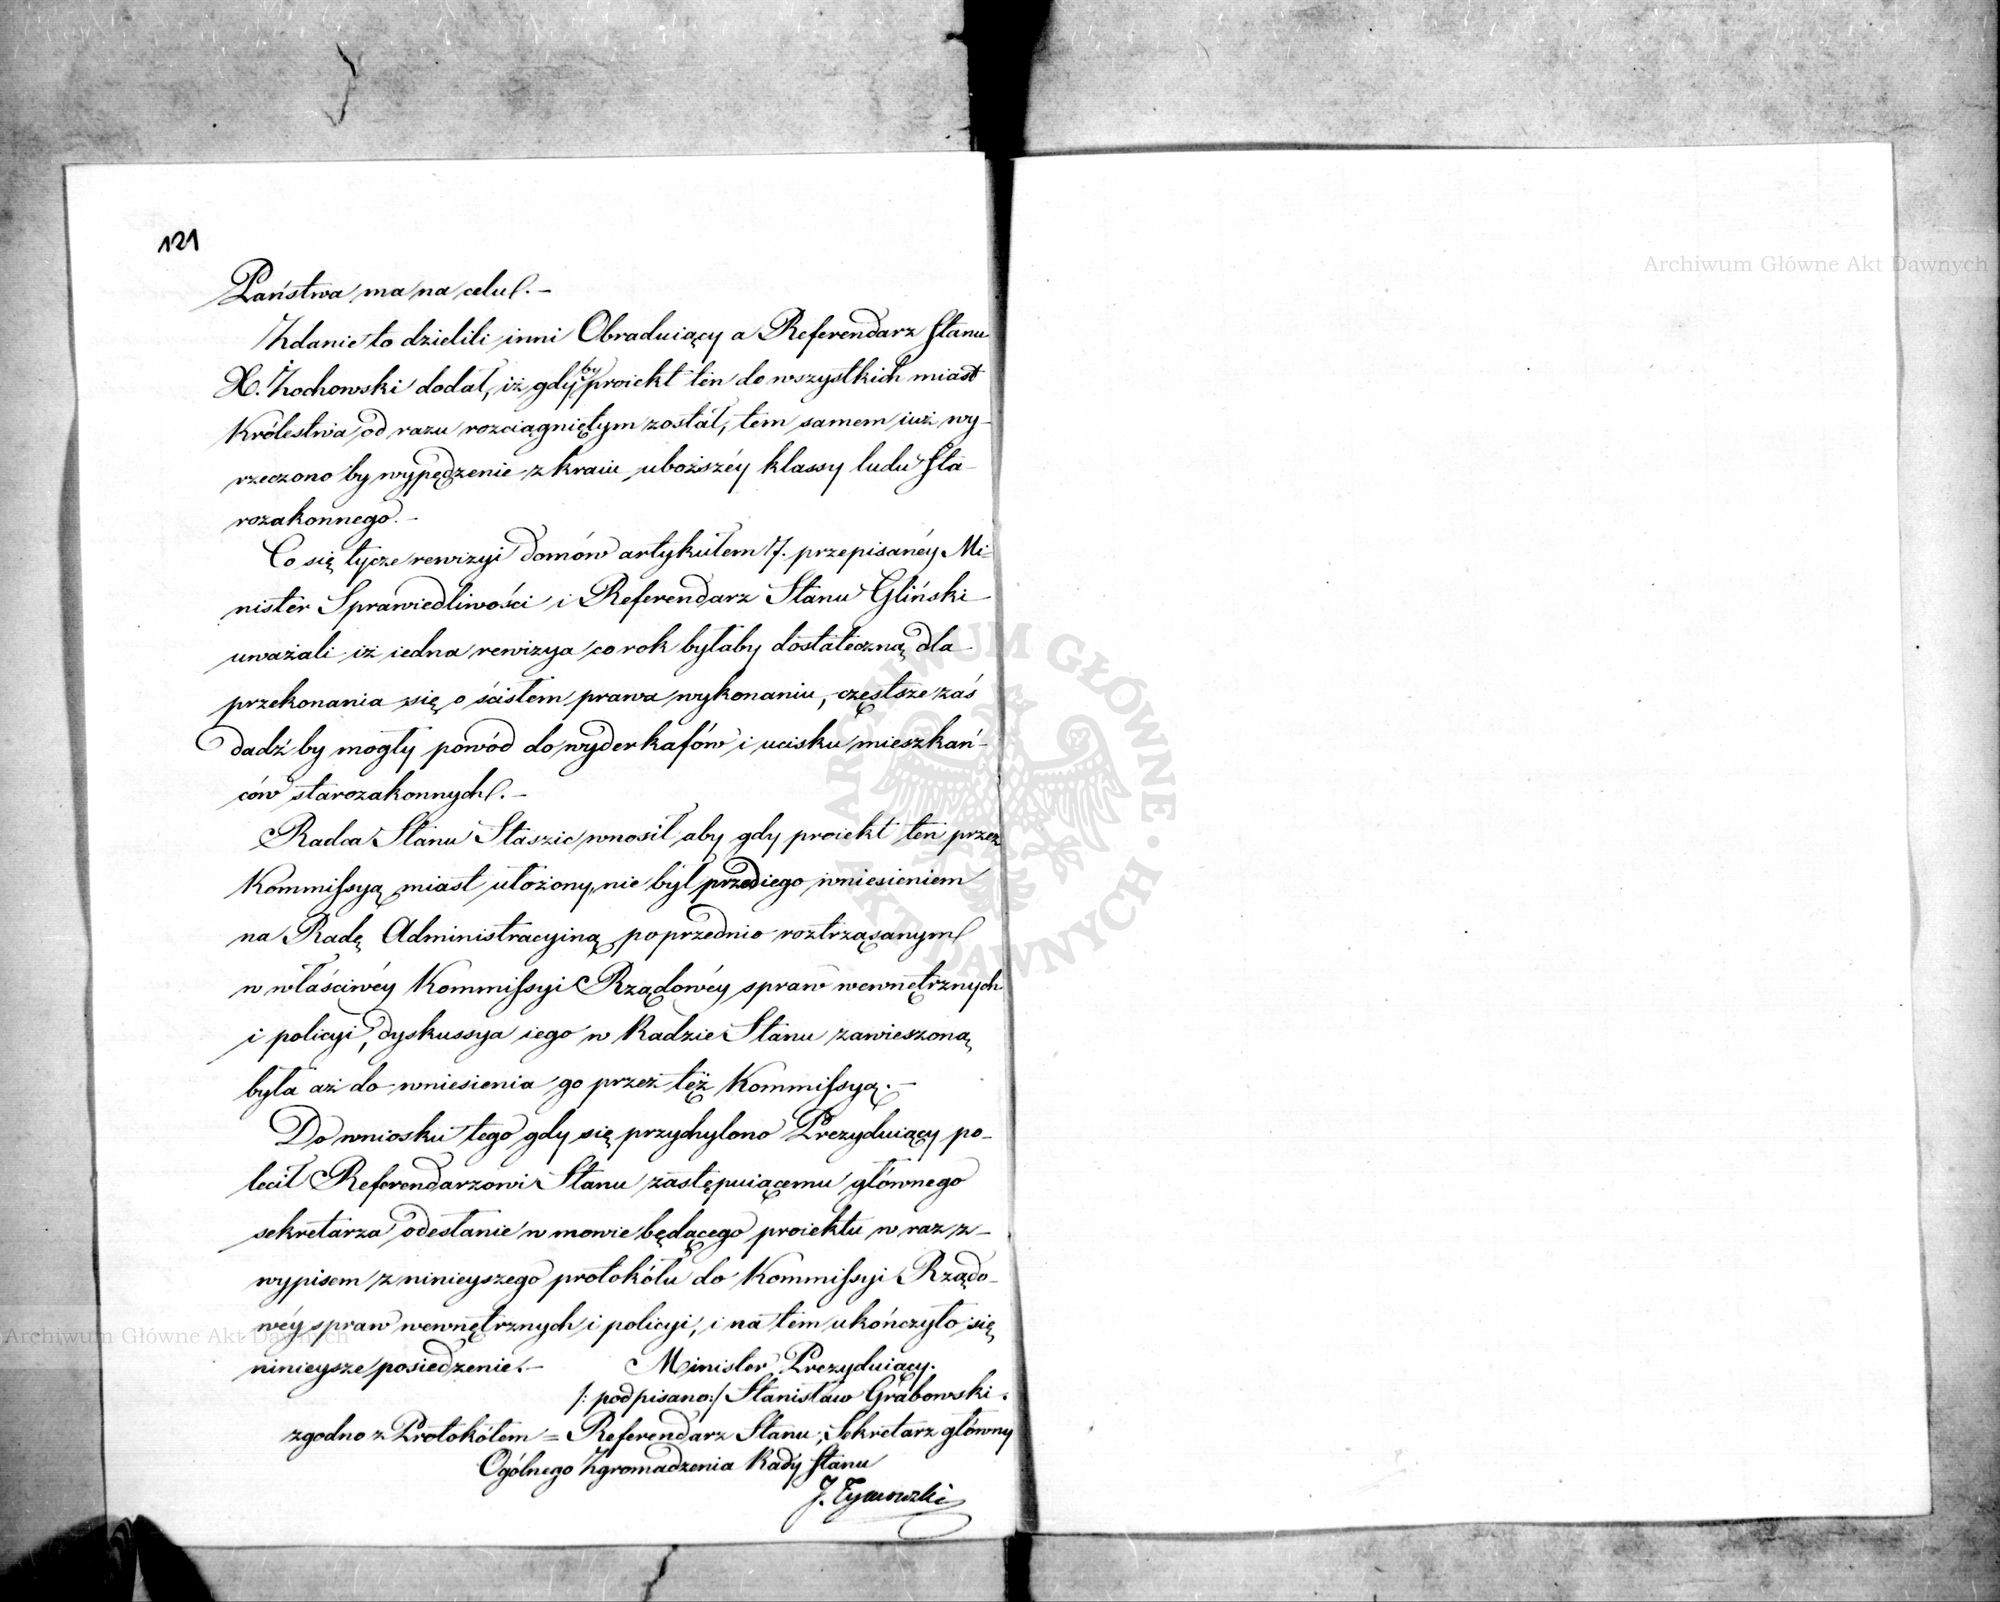 121
Państwa ma na celu.-
Zdanie to dzielili inni Obraduiący a Referendarz Stanu
X. Żochowski dodał, iż gdyby proiekt ten do wszystkich miast
Królestwa od razu rozciągniętym został, tem samem iuż wy-
rzeczono by wypędzenie z kraiu uboższéy klassy ludu Sta-
rozakonnego.-
Co się tycze rewizyi domów artykułem 7. przepisanéy Mi-
nister Sprawiedliwości i Referendarz Stanu Gliński
uważali iż iedna rewizya co rok byłaby dostateczną dla
przekonania się o ścisłem prawa wykonaniu, częstsze zaś
dadź by mogły powód do wyderkafów i ucisku mieszkań-
ców starozakonnych.-
Radca Stanu Staszic wnosił aby gdy proiekt ten przez
Kommissyą miast ułożony, nie był przed iego wniesieniem
na Radę Administracyiną poprzednio roztrząsanym
w właściwéy Kommissyi Rządowéy spraw wewnętrznych
i policyi, dyskussya iego w Radzie Stanu zawieszoną
była aż do wniesienia go przez tęż Kommissyą.-
Do wniosku tego gdy się przychylono Prezyduiący po-
lecił Referendarzowi Stanu zastępuiącemu głównego
sekretarza odesłanie w mowie będącego proiektu w raz z
wypisem z ninieyszego protokółu do Kommissyi Rządo-
wéy spraw wewnętrznych i policyi, i na tem ukończyło się
ninieysze posiedzenie.- Minister Prezyduiący.
/: podpisano:/ Stanisław Grabowski.
zgodno z Protokółem = Referendarz Stanu, Sekretarz główny
Ogólnego Zgromadzenia Rady Stanu
J. Tymowski
Archiwum Główne Akt Dawnych
Archiwum Główne Akt Dawnych
ARCHIWUM GŁÓWNE AKT DAWNYCH